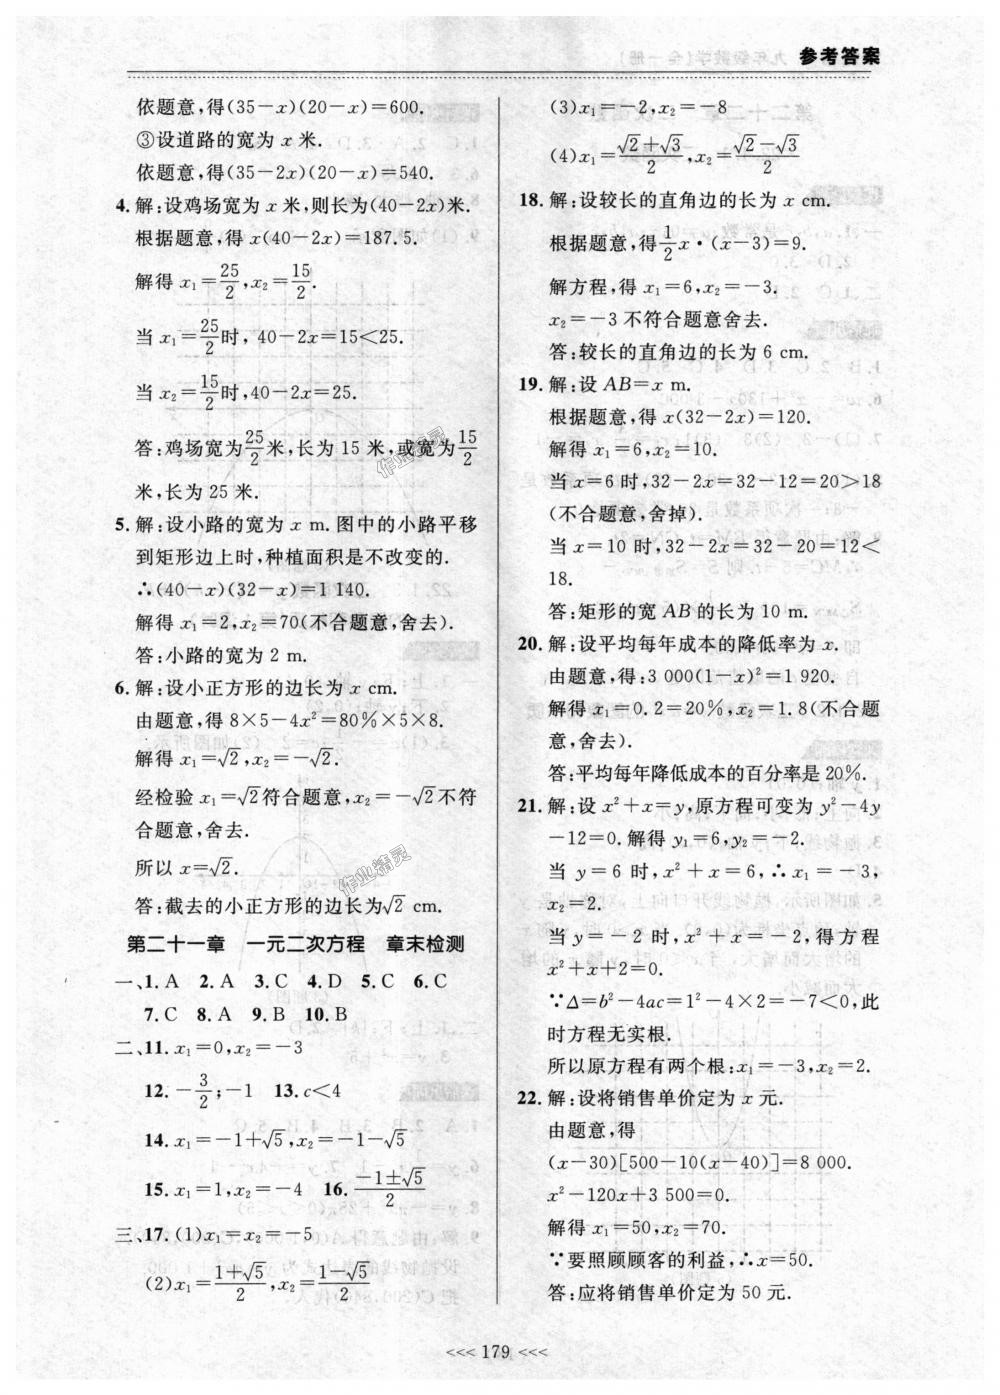 参考答案
依题意,得(35-x)(20-x)=600.
③设道路的宽为 x 米.
依题意,得(35-2x)(20-x)=540.
4. 解:设鸡场宽为 x 米,则长为(40-2x)米.
根据题意,得 x(40-2x)=187.5.
解得 x₁=25/2,x₂=15/2.
当 x₁=25/2时,40-2x=15<25.
当 x₂=15/2时,40-2x=25.
答:鸡场宽为25/2米,长为 15 米,或宽为15/2
米,长为 25 米.
5. 解:设小路的宽为 x m. 图中的小路平移
到矩形边上时,种植面积是不改变的.
∴(40-x)(32-x)=1 140.
解得 x₁=2,x₂=70(不合题意,舍去).
答:小路的宽为 2 m.
6. 解:设小正方形的边长为 x cm.
由题意,得 8×5-4x²=80%×5×8.
解得 x₁=√2,x₂=-√2.
经检验 x₁=√2符合题意,x₂=-√2不符
合题意,舍去.
所以 x=√2.
答:截去的小正方形的边长为√2 cm.
第二十一章 一元二次方程 章末检测
一、1. A 2. A 3. C 4. D 5. C 6. C
7. C 8. A 9. B 10. B
二、11. x₁=0,x₂=-3
12. -3/2;-1 13. c<4
14. x₁=-1+√5,x₂=-1-√5
15. x₁=1,x₂=-4 16. (-1±√5)/2
三、17. (1)x₁=x₂=-5
(2)x₁=(1+√5)/2,x₂=(1-√5)/2
(3)x₁=-2,x₂=-8
(4)x₁=(√2+√3)/2,x₂=(√2-√3)/2
18. 解:设较长的直角边的长为 x cm.
根据题意,得1/2x·(x-3)=9.
解方程,得 x₁=6,x₂=-3.
x₂=-3 不符合题意舍去.
答:较长的直角边的长为 6 cm.
19. 解:设 AB=x m.
根据题意,得 x(32-2x)=120.
解得 x₁=6,x₂=10.
当 x=6 时,32-2x=32-12=20>18
(不合题意,舍掉).
当 x=10 时,32-2x=32-20=12<
18.
答:矩形的宽 AB 的长为 10 m.
20. 解:设平均每年成本的降低率为 x.
由题意,得:3 000(1-x)²=1 920.
解得 x₁=0.2=20%,x₂=1.8(不合题
意,舍去).
答:平均每年降低成本的百分率是 20%.
21. 解:设 x²+x=y,原方程可变为 y²-4y
-12=0. 解得 y₁=6,y₂=-2.
当 y=6 时,x²+x=6,∴x₁=-3,
x₂=2.
当 y=-2 时,x²+x=-2,得方程
x²+x+2=0.
∵Δ=b²-4ac=1²-4×2=-7<0,此
时方程无实根.
所以原方程有两个根:x₁=-3,x₂=2.
22. 解:设将销售单价定为 x 元.
由题意,得
(x-30)[500-10(x-40)]=8 000.
x²-120x+3 500=0.
解得 x₁=50,x₂=70.
∵要照顾顾客的利益,∴x=50.
答:应将销售单价定为 50 元.
<<< 179 <<<
作业精灵
作业精灵